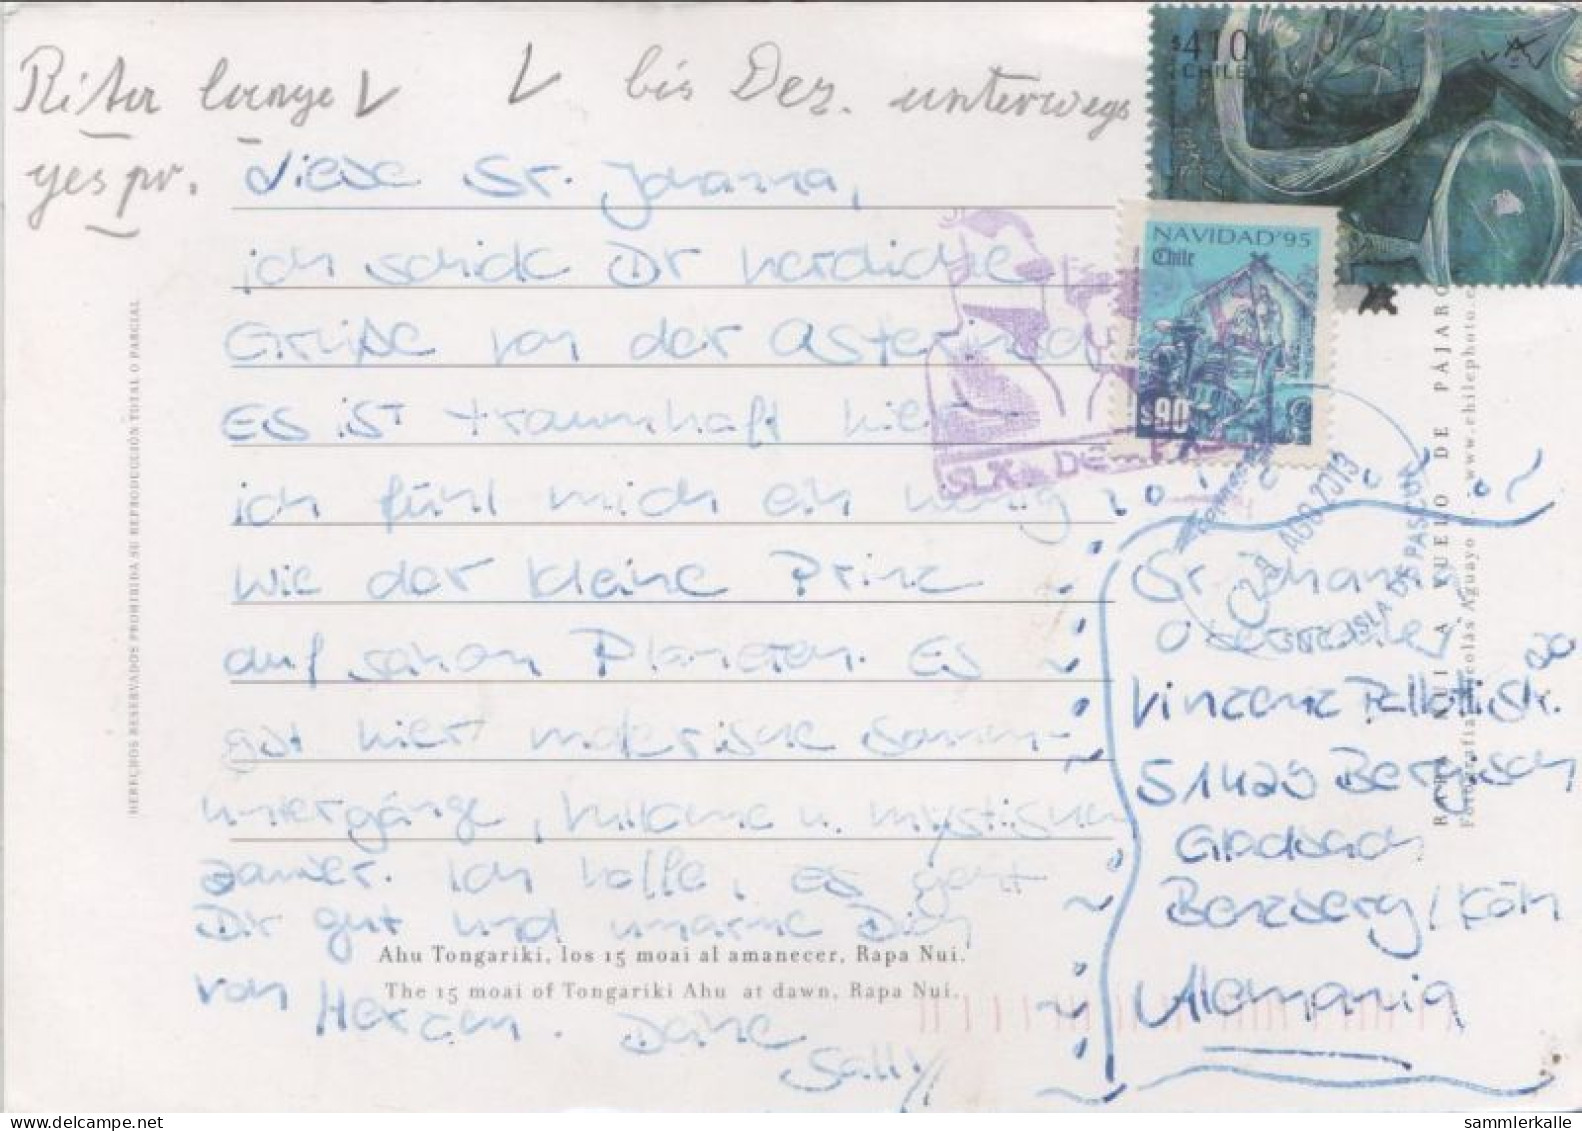 bis Dez. unterwegs
yes pr.
$410
CHILE
NAVIDAD'95
Chile
$90
Liebe Sr. Johanna,
ich schick Dir herzliche
Grüße von der Osterinsel
Es ist traumhaft hier
ich fühl mich ein wenig
wie der kleine Prinz
auf Planeten. Es
gibt hier malerische Sonnen-
untergänge, u. mystischen
Zauber. Ich hoffe, es geht
Dir gut und umarme Dich
von Herzen. Deine
Sally
Ahu Tongariki, los 15 moai al amanecer, Rapa Nui.
The 15 moai of Tongariki Ahu at dawn, Rapa Nui.
HERECHOS RESERVADOS PROHIBIDA SU REPRODUCCIÓN TOTAL O PARCIAL
AGO 2013
ISLA DE PASCUA
RAPA NUI A VUELO DE PÁJARO
Fotografía Nicolás Aguayo - www.chilephoto.c
Sr. Johanna
Vinzenz Pallotti Str. 20
51429 Bergisch
Gladbach
Bensberg/Köln
Alemania
www.delcampe.net
sammlerkalle